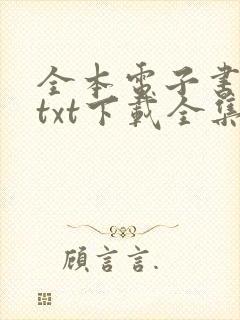 全本電子書
txt下載全集
顧言言.